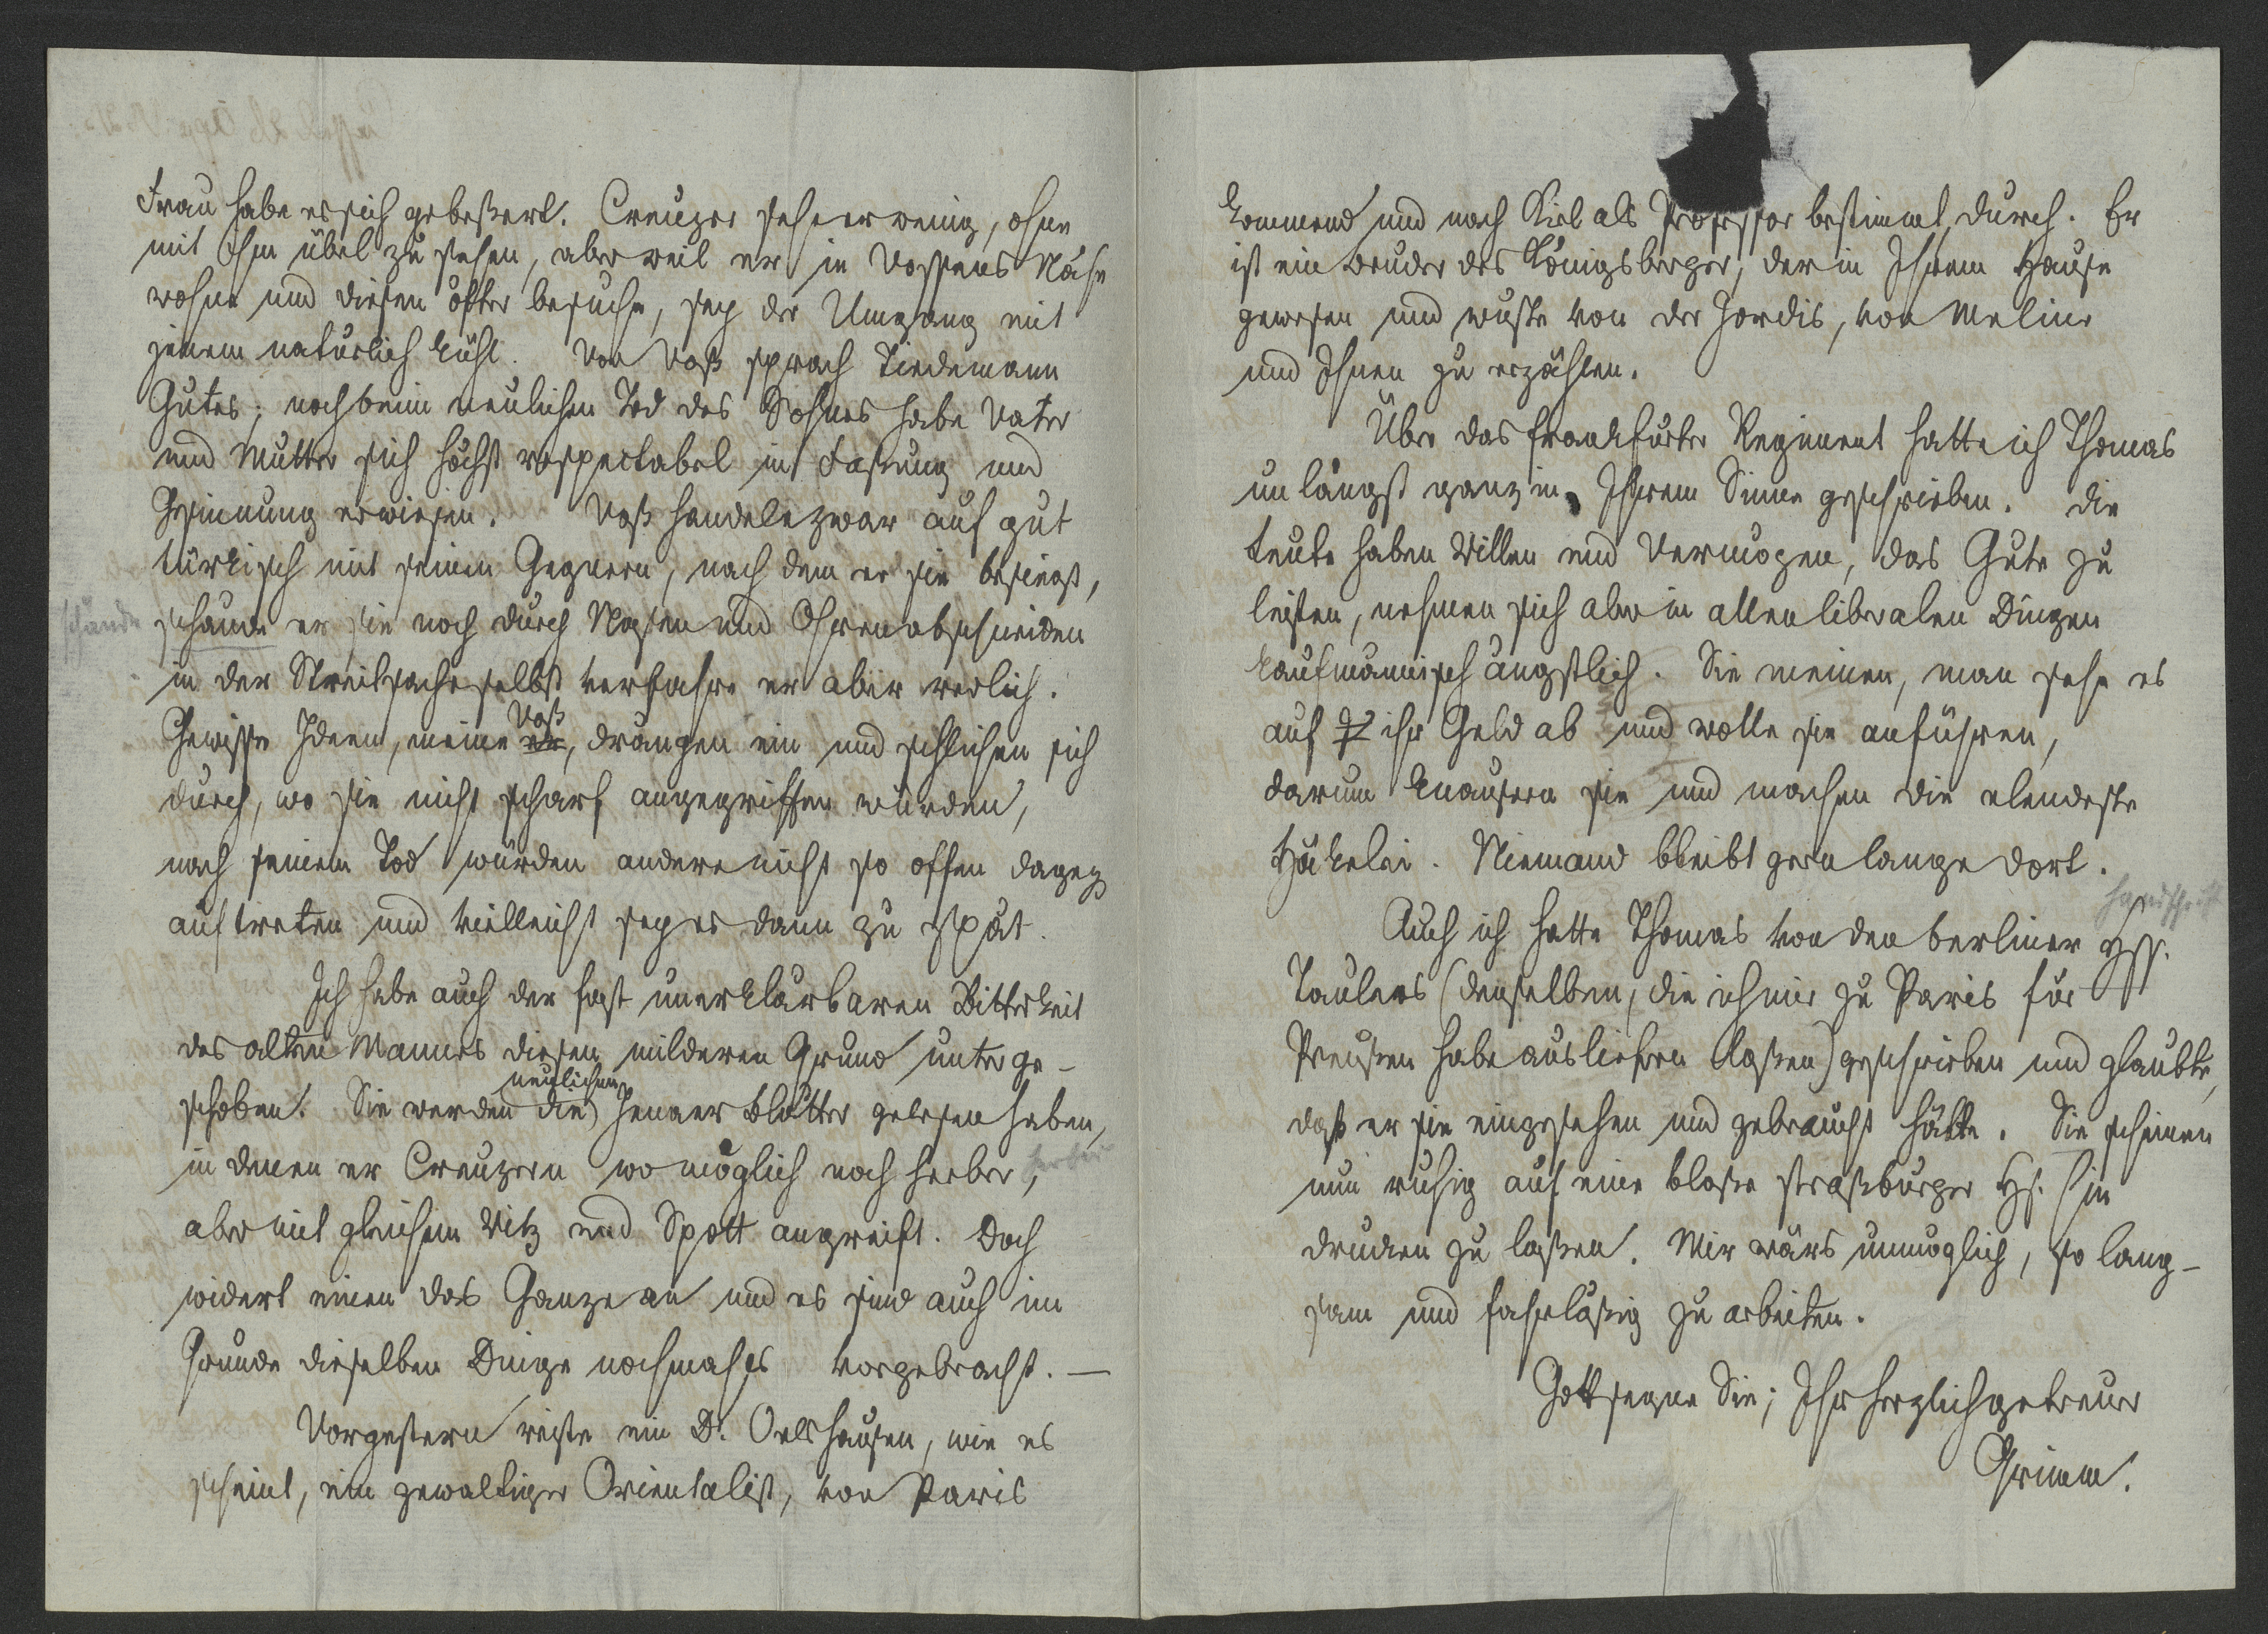 Frau habe er sich gebeßert. Creuzer sehe er wenig, ohne
mit ihm übel zu stehen, aber weil er in Vossens Nähe
wohne und diesen öfter besuche, sey der Umgang mit
jenem natürlich kühl. Von Voß sprach Tiedemann
Gutes; noch beim neulichen Tod des Sohnes habe Vater
und Mutter sich höchst respectabel in Faßung und
Gesinnung erwiesen. Voß handele zwar auf gut
türkisch mit seinen Gegnern, nach dem er sie besiegt,
schände
schände er sie noch durch Nasen und Ohrenabschneiden
in der Streitsache selbst verfahre er aber redlich.
Voß
Gewisse Ideen, meine er, drängen ein und schlichen sich
durch, wo sie nicht scharf angegriffen würden,
nach seinem Tod würden andere nicht so offen dageg
auftreten und vielleicht sey es dann zu spät.
Ich habe auch der fast unerklärbaren Bitterkeit
des alten Mannes diesen milderen Grund unterge-
neulichen
schoben. Sie werden die Jenaer Blätter gelesen haben,
in denen er Creuzern wo möglich noch herber, herber
aber mit gleichem Witz und Spott angreift. Doch
widert einen das Ganze an und es sind auch im
Grunde dieselben Dinge nochmahls vorgebracht. —
Vorgestern reiste ein D. Oelshausen, wie es
scheint, ein gewaltiger Orientalist, von Paris
kommend und nach Kiel als Professor bestimmt, durch. Er
ist ein Bruder des Königsberger, der in Ihrem Hause
gewesen und wuste von der Jordis, von Meline
und Ihnen zu erzählen.
Über das frankfurter Regiment hatte ich Thomas
unlängst ganz in Ihrem Sinne geschrieben. Die
Leute haben Willen und Vermögen, das Gute zu
leisten, nehmen sich aber in allen liberalen Dingen
kaufmännisch ängstlich. Sie meinen, man sehe es
auf ihr Geld ab und wolle sie anführen,
darum knausern sie und machen die elendeste
Häkelei. Niemand bleibt gern lange dort.
Handschrift
Auch ich hatte Thomas von den berliner Hss.
Taulers (denselben, die ich mir zu Paris für
Preußen habe ausliefern laßen) geschrieben und glaubte,
daß er sie eingesehen und gebraucht hätte. Sie scheinen
nun ruhig auf eine bloße straßburger Hs. hin
drucken zu laßen. Mir wärs unmöglich, so lang-
sam und fahrläßig zu arbeiten.
Gott segne Sie; Ihr herzlich getreuer
Grimm.